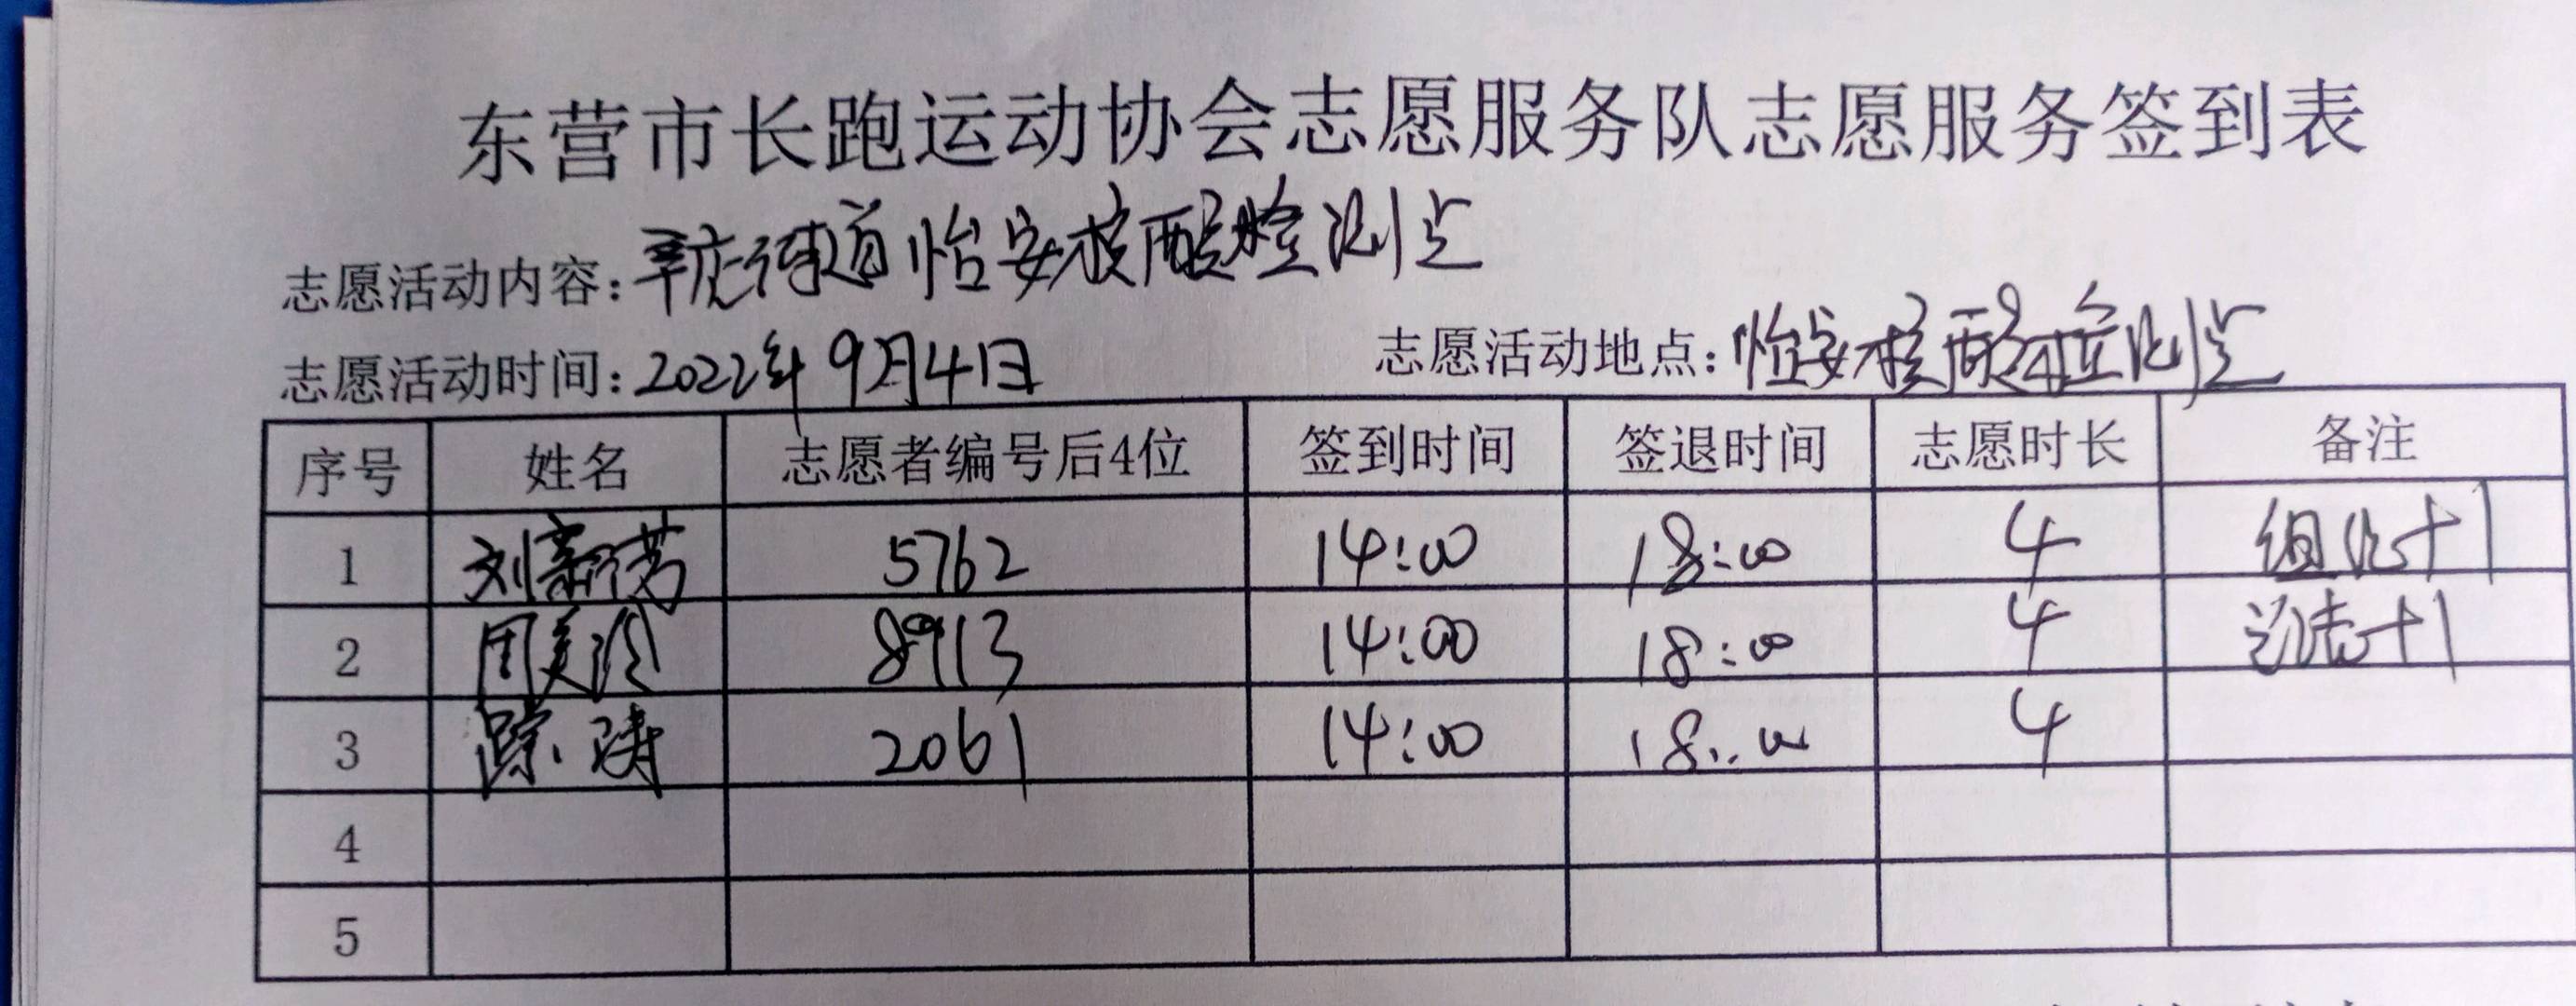 东营市长跑运动协会志愿服务队志愿服务签到表
志愿活动内容：辛店街道怡安核酸检测点
志愿活动时间：2022年9月4日 志愿活动地点：怡安核酸检测点
序号 姓名 志愿者编号后4位 签到时间 签退时间 志愿时长 备注
1 刘新芳 5762 14:00 18:00 4 组织+1
2 周美玲 8913 14:00 18:00 4 +1
3 涛 2061 14:00 18:00 4
4
5